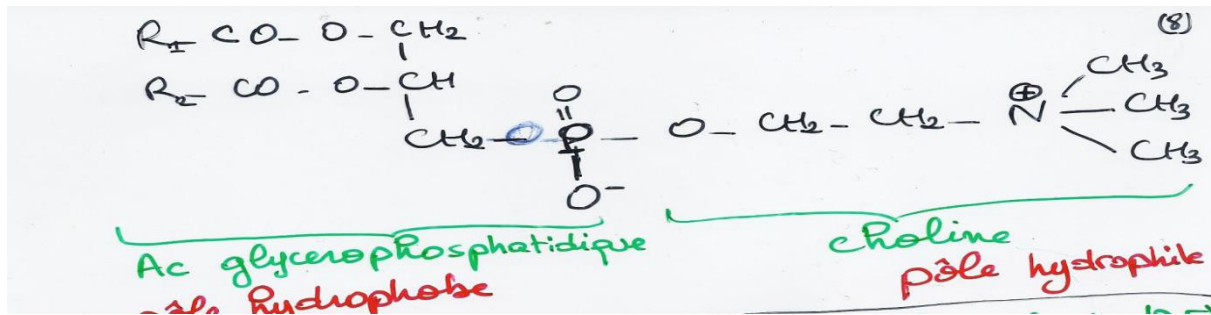 (8)
R1- CO- O- CH2
R2- CO - O- CH
CH2-O-P-O- CH2- CH2- N
O
O-
⊕
CH3
CH3
CH3
Ac glycerophosphatidique
choline
pôle hydrophobe
pôle hydrophile